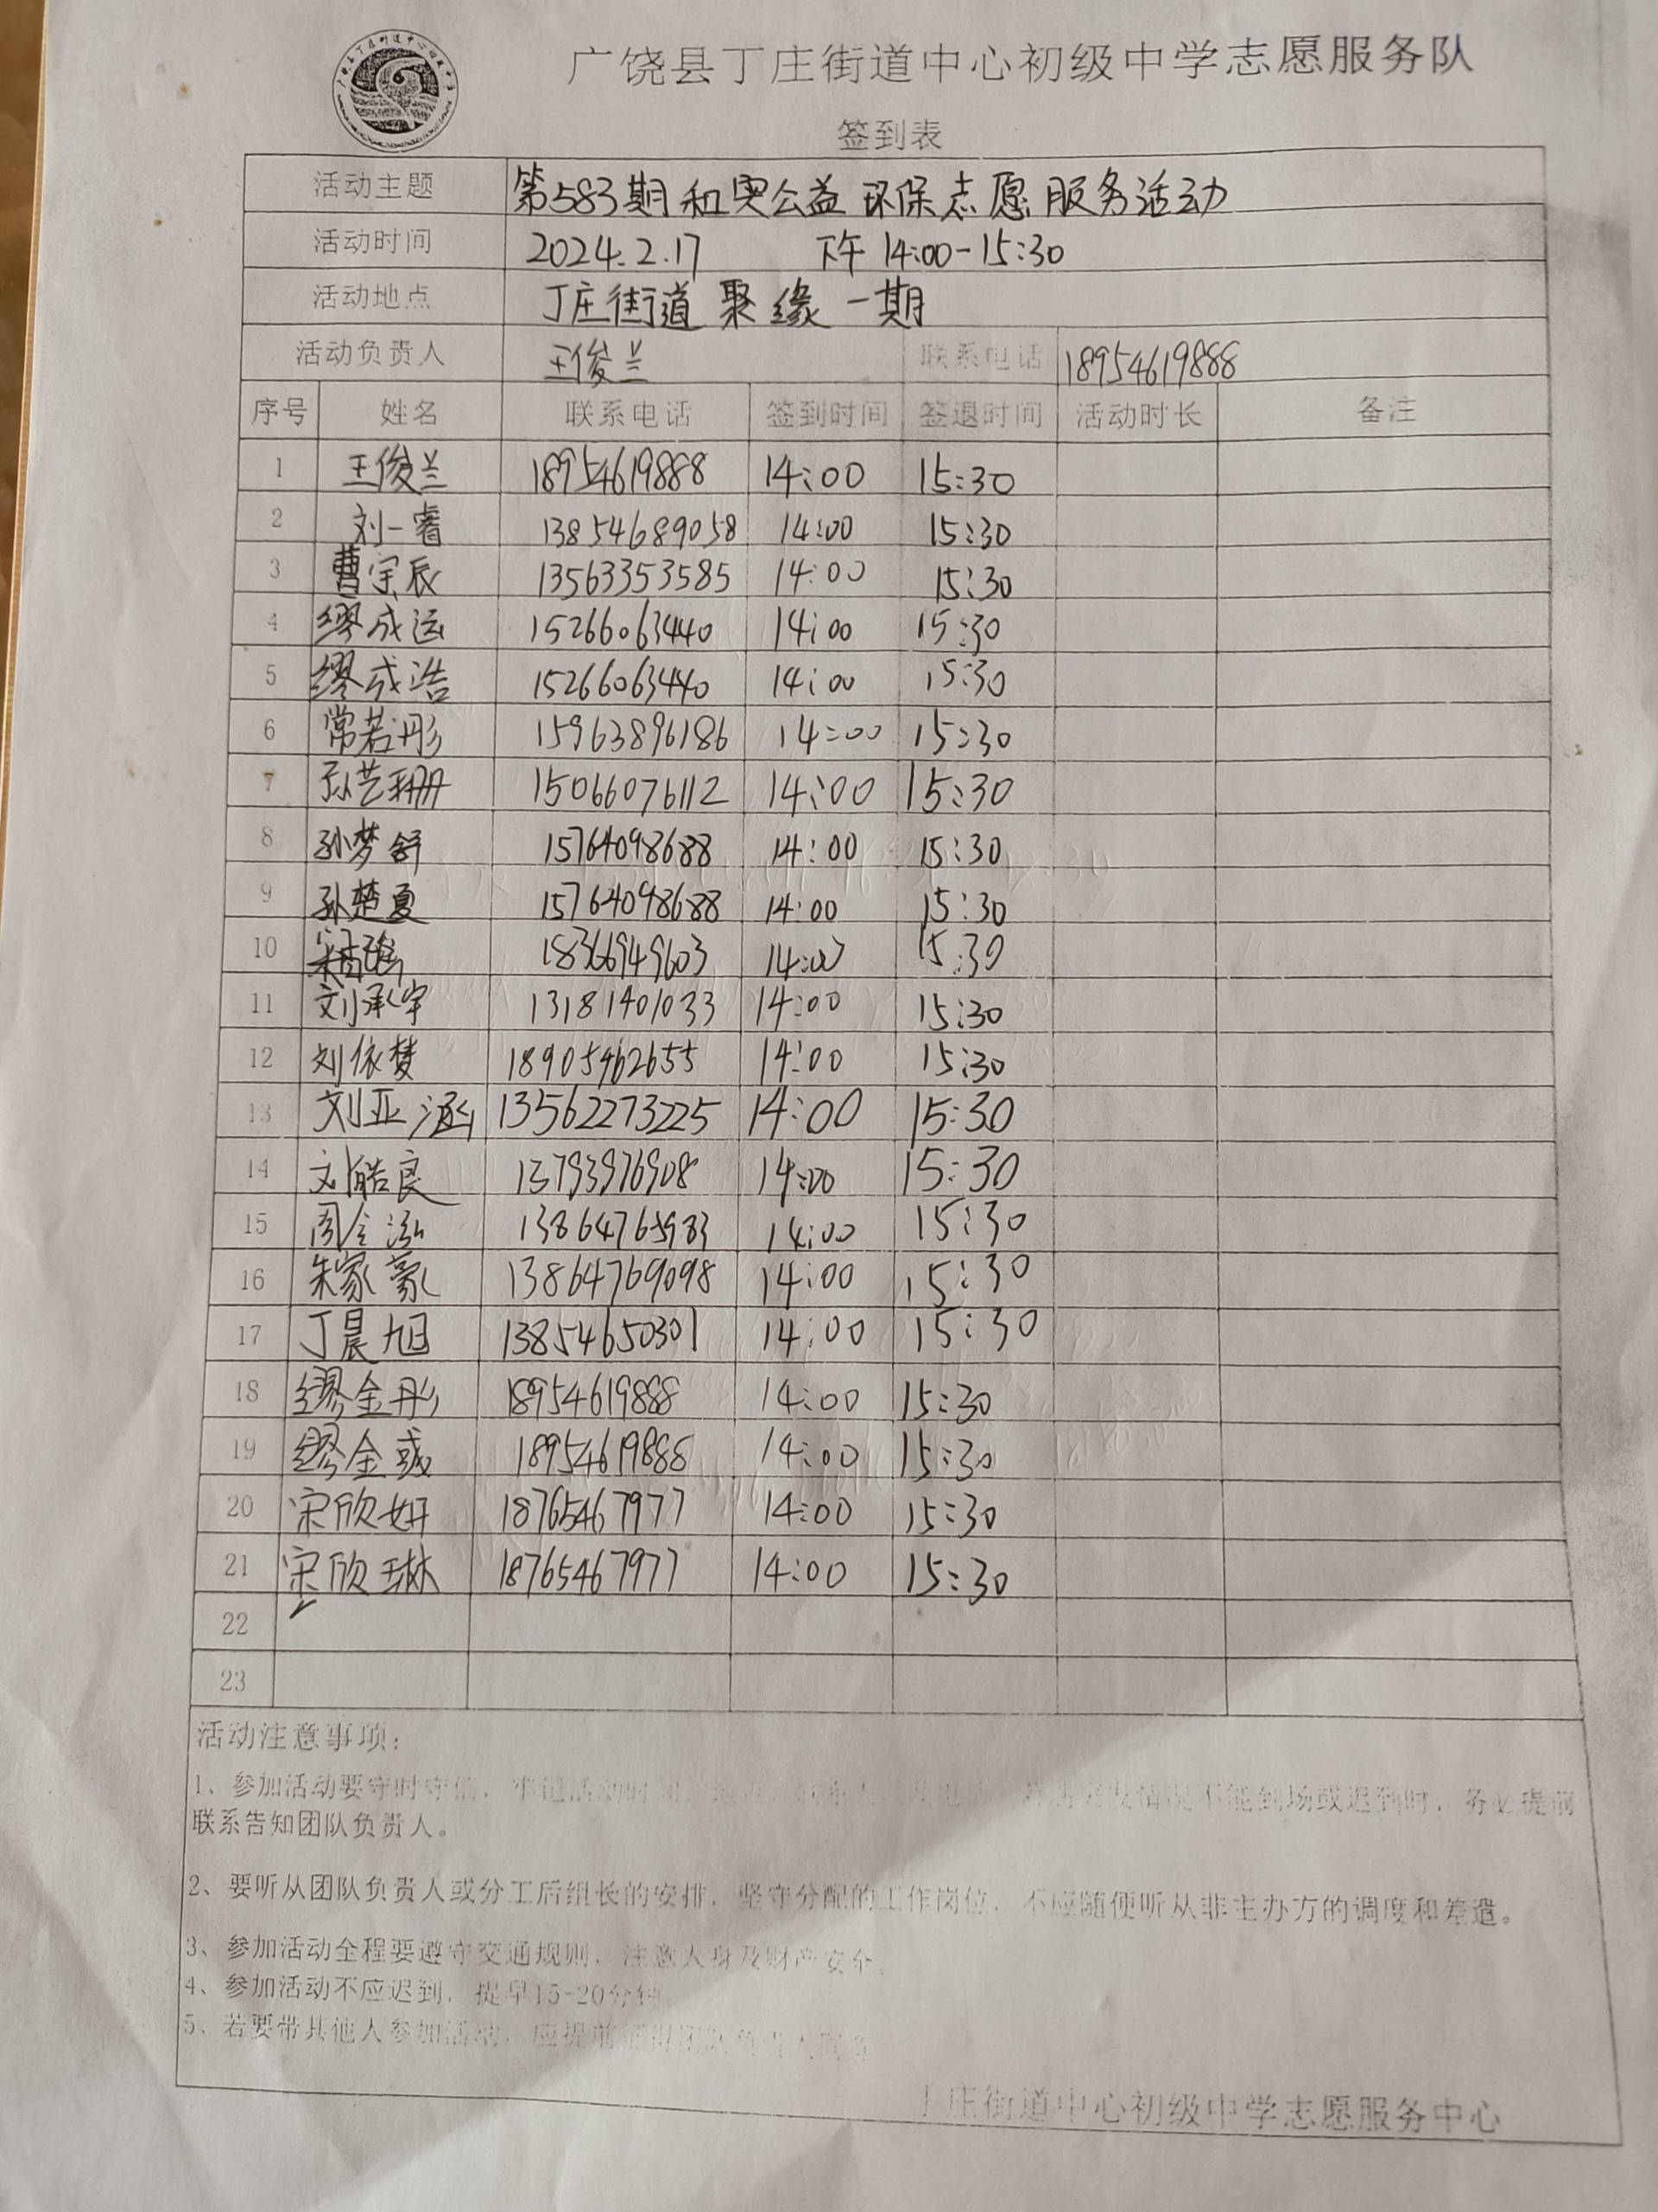 广饶县丁庄街道中心初级中学志愿服务队
签到表
活动主题 第583期和奥公益环保志愿服务活动
活动时间 2024.2.17 下午 14:00-15:30
活动地点 丁庄街道聚缘一期
活动负责人 王俊兰 联系电话 18954619888
序号 姓名 联系电话 签到时间 签退时间 活动时长 备注
1 王俊兰 18954619888 14:00 15:30
2 刘一睿 13854689058 14:00 15:30
3 曹宇辰 13563353585 14:00 15:30
4 缪成运 15266063440 14:00 15:30
5 缪成浩 15266063440 14:00 15:30
6 常若彤 15963896186 14:00 15:30
7 孙艺珊 15066076112 14:00 15:30
8 孙梦舒 15764098688 14:00 15:30
9 孙楚夏 15764098688 14:00 15:30
10 18366949603 14:00 15:30
11 刘承宇 13181401033 14:00 15:30
12 刘依梦 18905462655 14:00 15:30
13 刘亚涵 13562273225 14:00 15:30
14 刘皓良 13793976908 14:00 15:30
15 周金泓 13864765983 14:00 15:30
16 朱家豪 13864769098 14:00 15:30
17 丁晨旭 13854650301 14:00 15:30
18 缪金彤 18954619888 14:00 15:30
19 缪金彧 18954619888 14:00 15:30
20 宋欣妍 18765467977 14:00 15:30
21 宋欣琳 18765467977 14:00 15:30
22
23
活动注意事项：
1、参加活动要守时守信， 不能到场或迟到时，务必提前
联系告知团队负责人。
2、要听从团队负责人或分工后组长的安排，坚守分配的工作岗位，不应随便听从非主办方的调度和差遣。
3、参加活动全程要遵守交通规则，注意人身及财产安全。
4、参加活动不应迟到，提早15-20分钟
5、若要带其他人参加活动，应提前
丁庄街道中心初级中学志愿服务中心